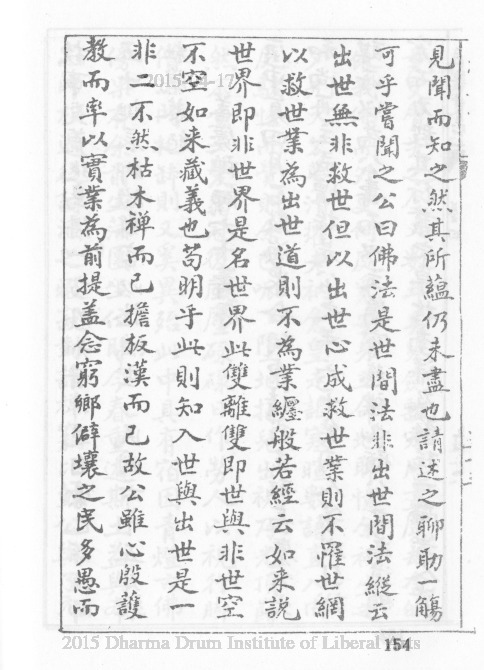 見聞而知之然其所蘊仍未盡也請述之聊助一觴
可乎嘗聞之公曰佛法是世間法非出世間法縱云
出世無非救世但以出世心成救世業則不罹世網
以救世業為出世道則不為業纏般若經云如来說
世界即非世界是名世界此雙離雙即世與非世空
不空如来藏義也苟明乎此則知入世與出世是一
非二不然枯木禅而已擔板漢而已故公雖心殷護
教而率以實業為前提盖念窮鄉僻壤之民多愚而
2015 Dharma Drum Institute of Liberal Arts
154